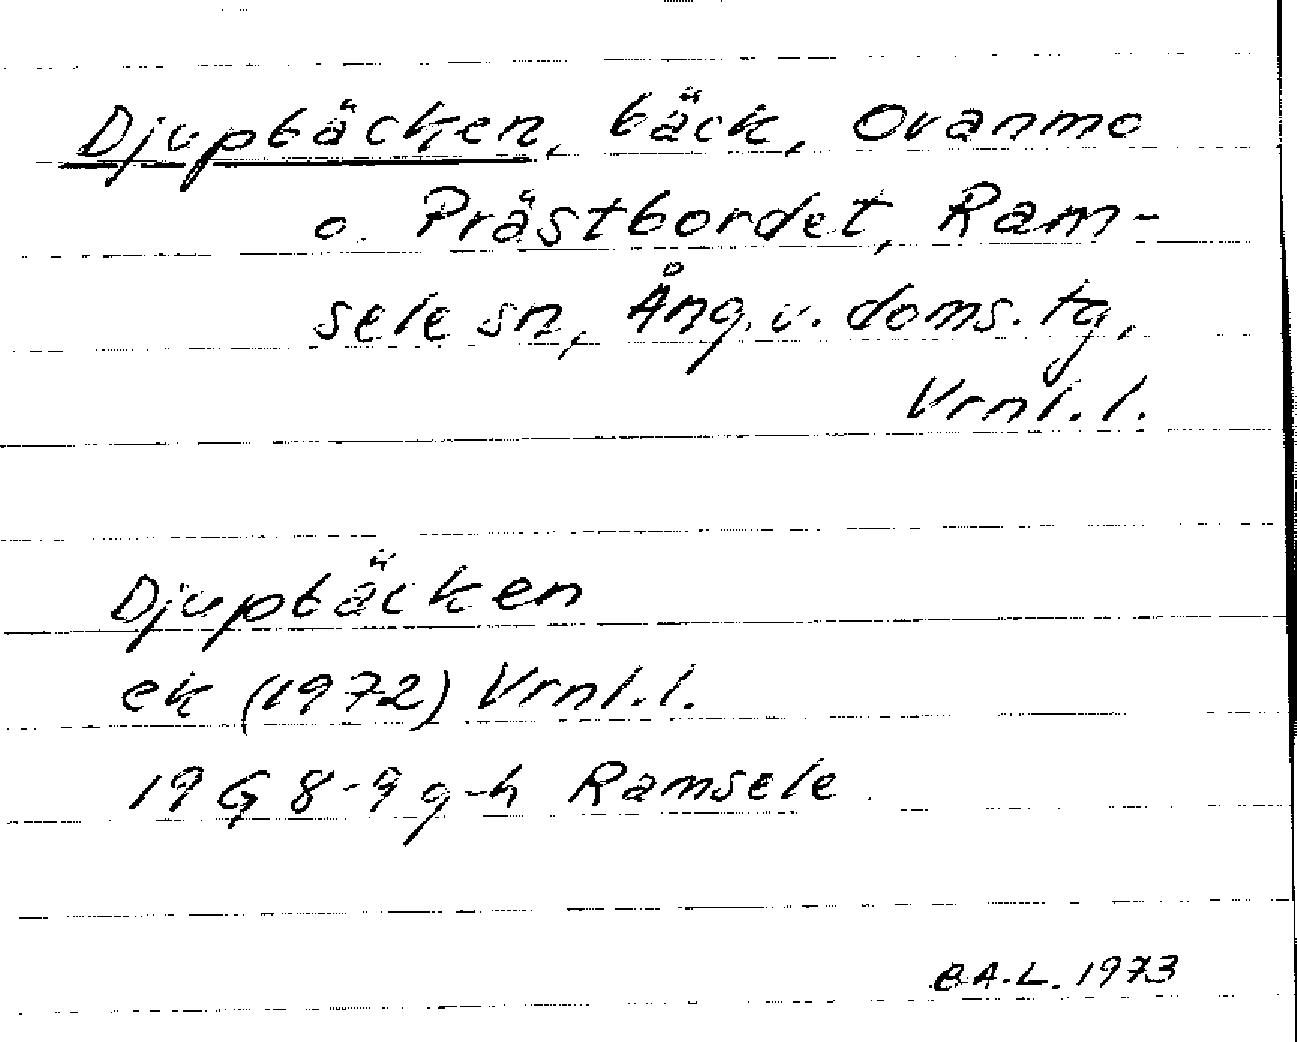 Djupbäcken, bäck, Ovanmo
o. Prästbordet, Ram-
sele sn, Ång. v. doms. tg,
Vrnl. l.
Djupbäcken
ek (1972) Vrnl. l.
19 G 8-9 g-h Ramsele
B.A.L. 1973